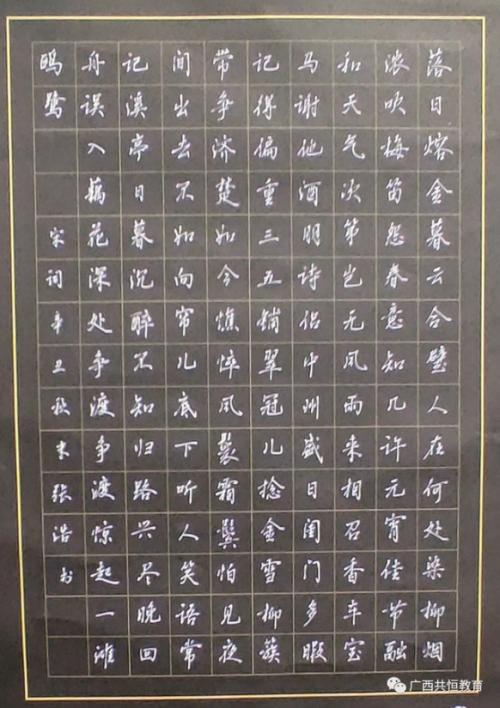 落日熔金暮云合璧人在何处染柳烟
浓吹梅笛怨春意知几许元宵佳节融
和天气次第岂无风雨来相召香车宝
马谢他酒朋诗侣中州盛日闺门多暇
记得偏重三五铺翠冠儿捻金雪柳簇
带争济楚如今憔悴风鬟霜鬓怕见夜
间出去不如向帘儿底下听人笑语常
记溪亭日暮沉醉不知归路兴尽晚回
舟误入藕花深处争渡争渡惊起一滩
鸥鹭 宋词辛丑秋末张浩书
广西共恒教育